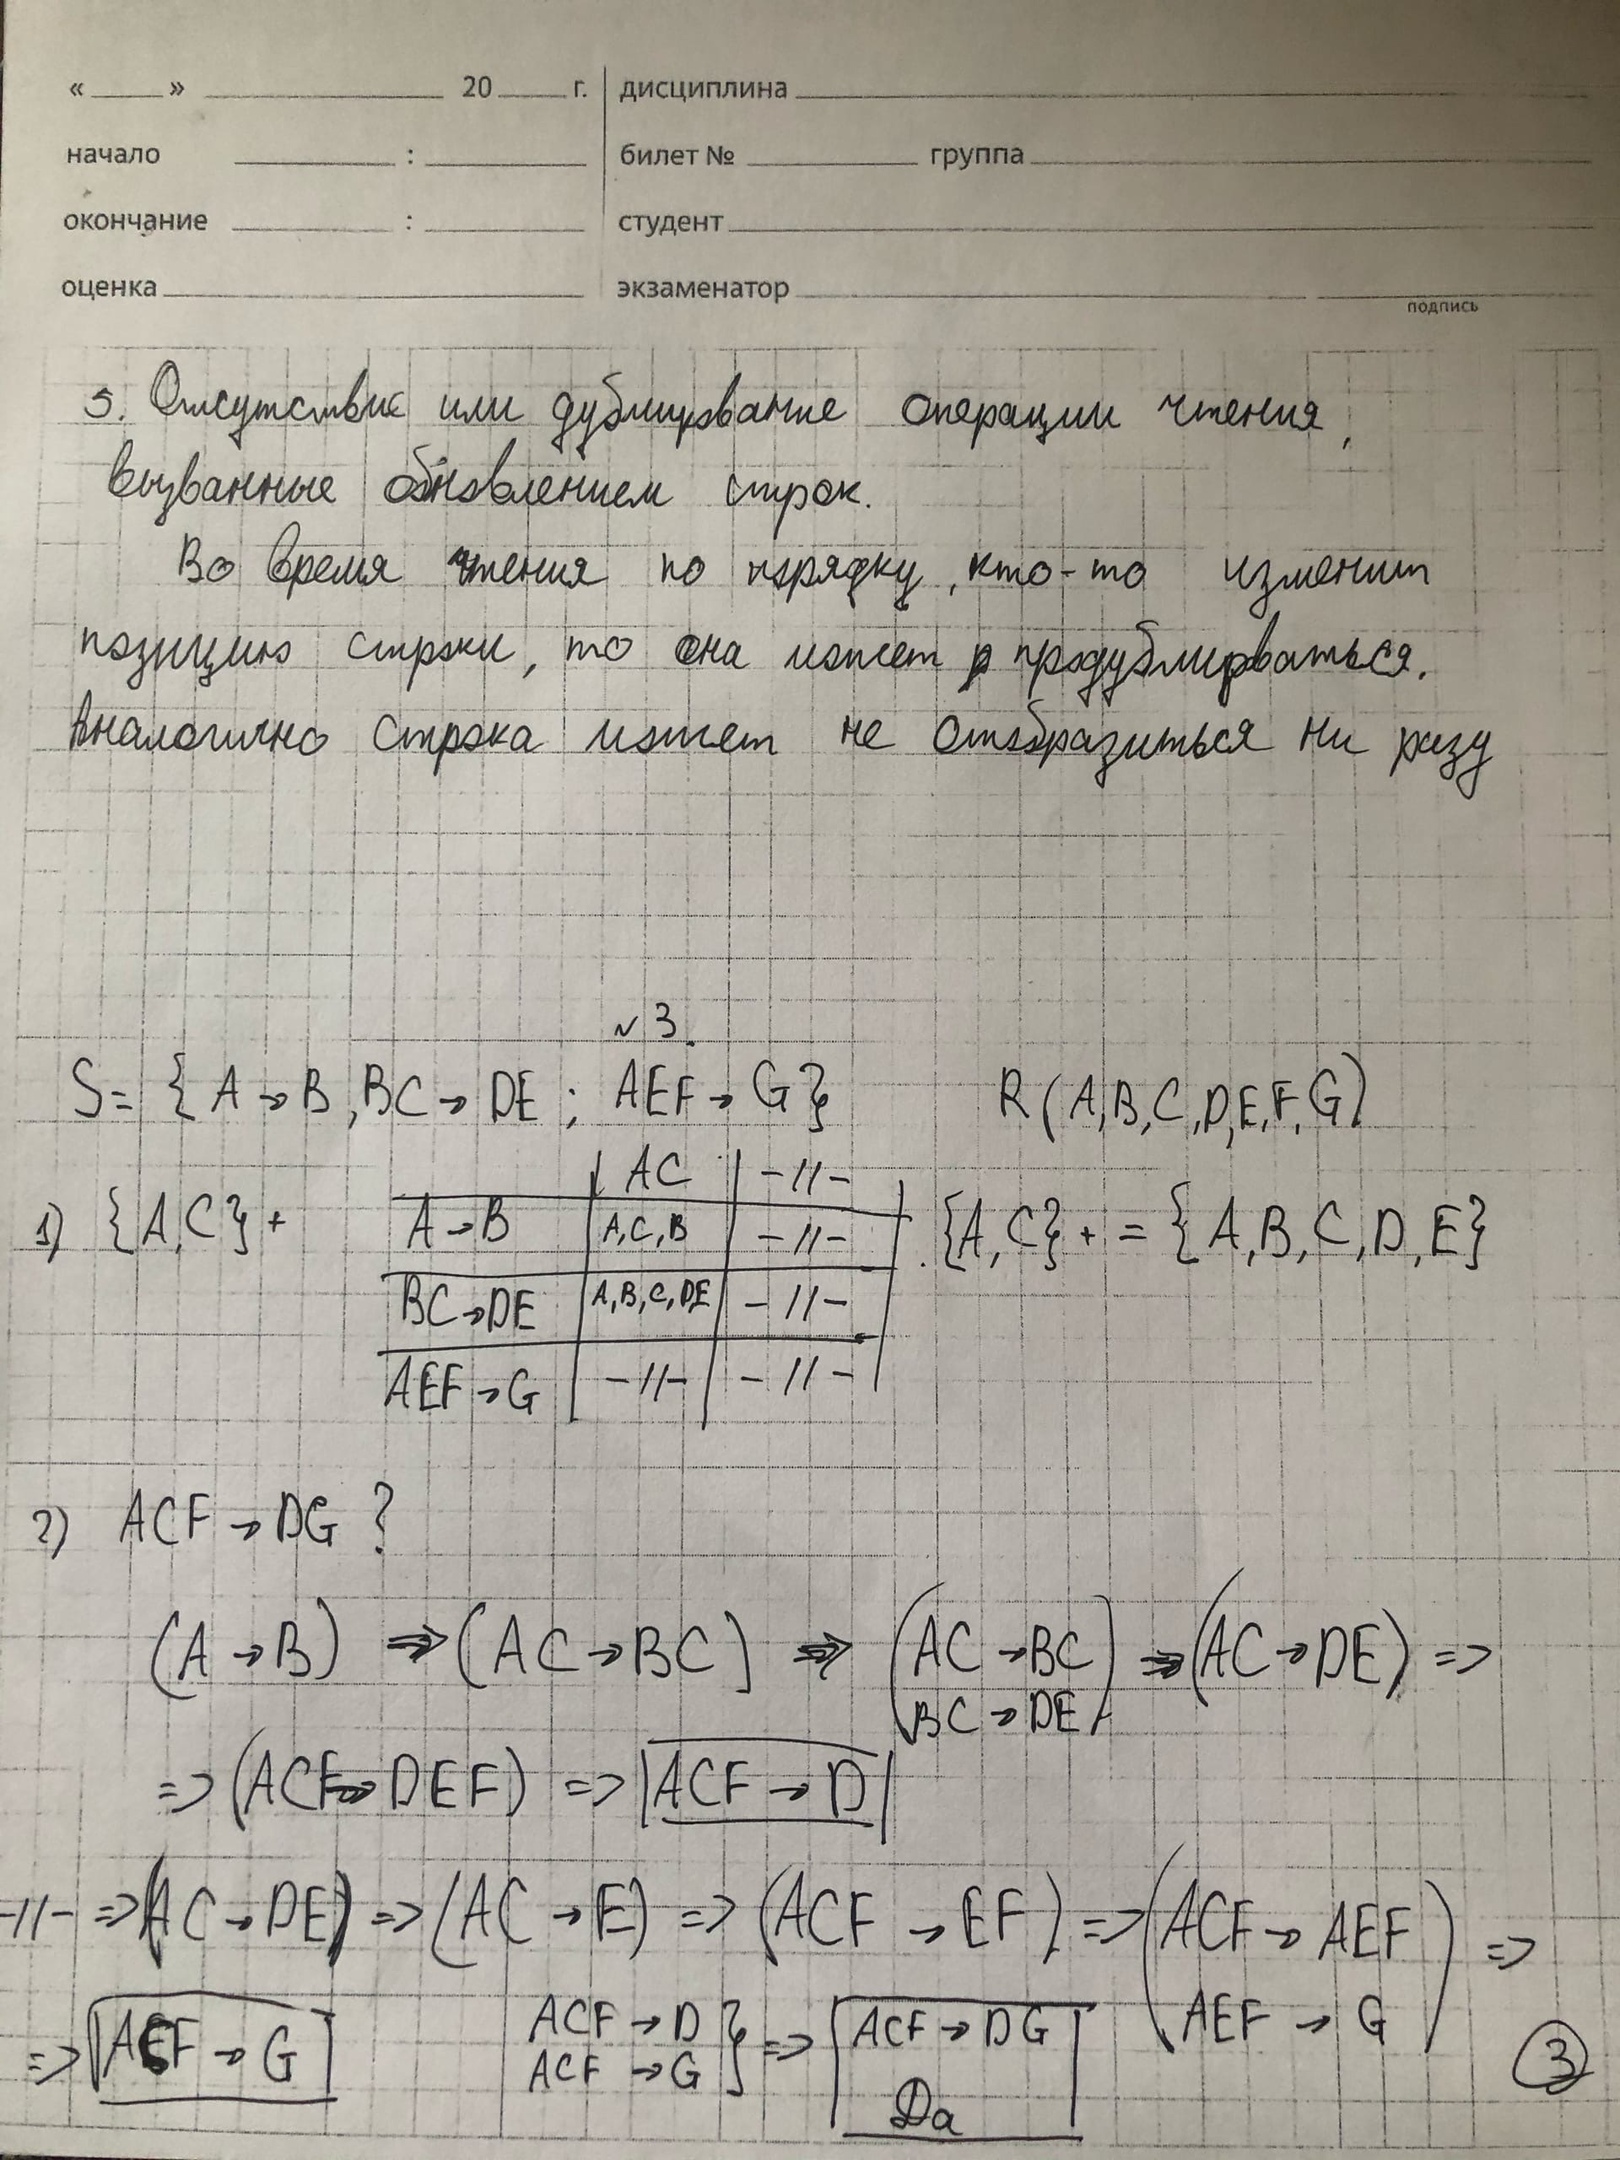 « ____ » ____________ 20 ____ г. дисциплина
начало ____ : ____ билет № ____ группа
окончание ____ : ____ студент
оценка ____ экзаменатор
подпись
5. Отсутствие или дублирование операции чтения,
вызванные обновлением строк.
Во время чтения по порядку, кто-то изменит
позицию строки, то она может продублироваться.
Аналогично строка может не отобразиться ни разу
№3.
S = { A → B, BC → DE ; AEF → G } R(A,B,C,D,E,F,G)
AC -//-
1) {A,C}+ A → B A,C,B -//- {A,C}+ = {A,B,C,D,E}
BC → DE A,B,C,DE -//-
AEF → G -//- -//-
2) ACF → DG ?
(A → B) ⇒ (AC → BC) ⇒ (AC → BC ⇒ (AC → DE) =>
BC → DE)
=> (ACF → DEF) => ACF → D
-//- => (AC → DE) => (AC → E) => (ACF → EF) => (ACF → AEF =>
AEF → G)
=> ACF → G ACF → D } => ACF → DG
ACF → G Да
3